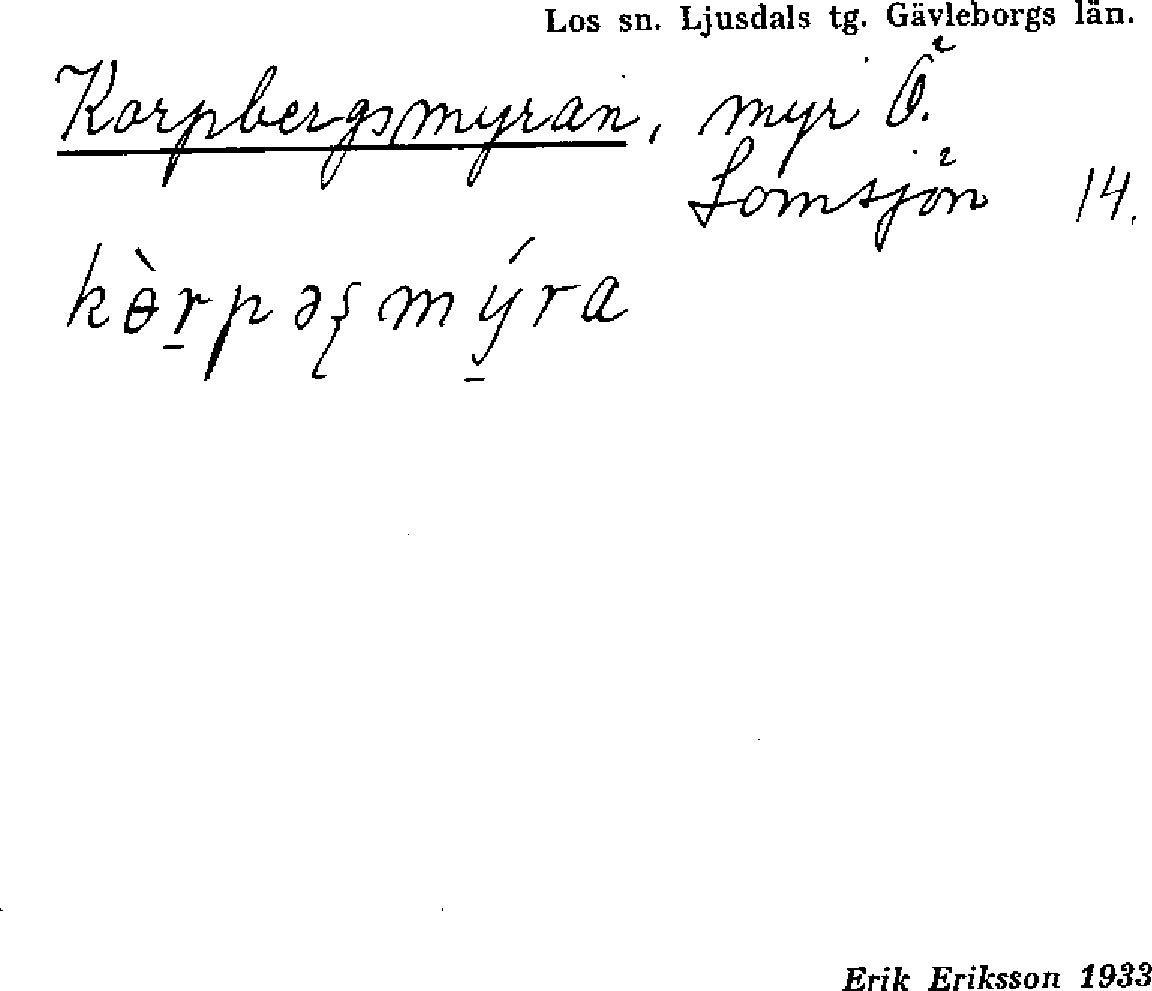 Los sn. Ljusdals tg. Gävleborgs län.
Korpbergsmyran, myr Ö.
Lomsjön 14.
kɵ̀r̠pəʂmý̠ra
Erik Eriksson 1933